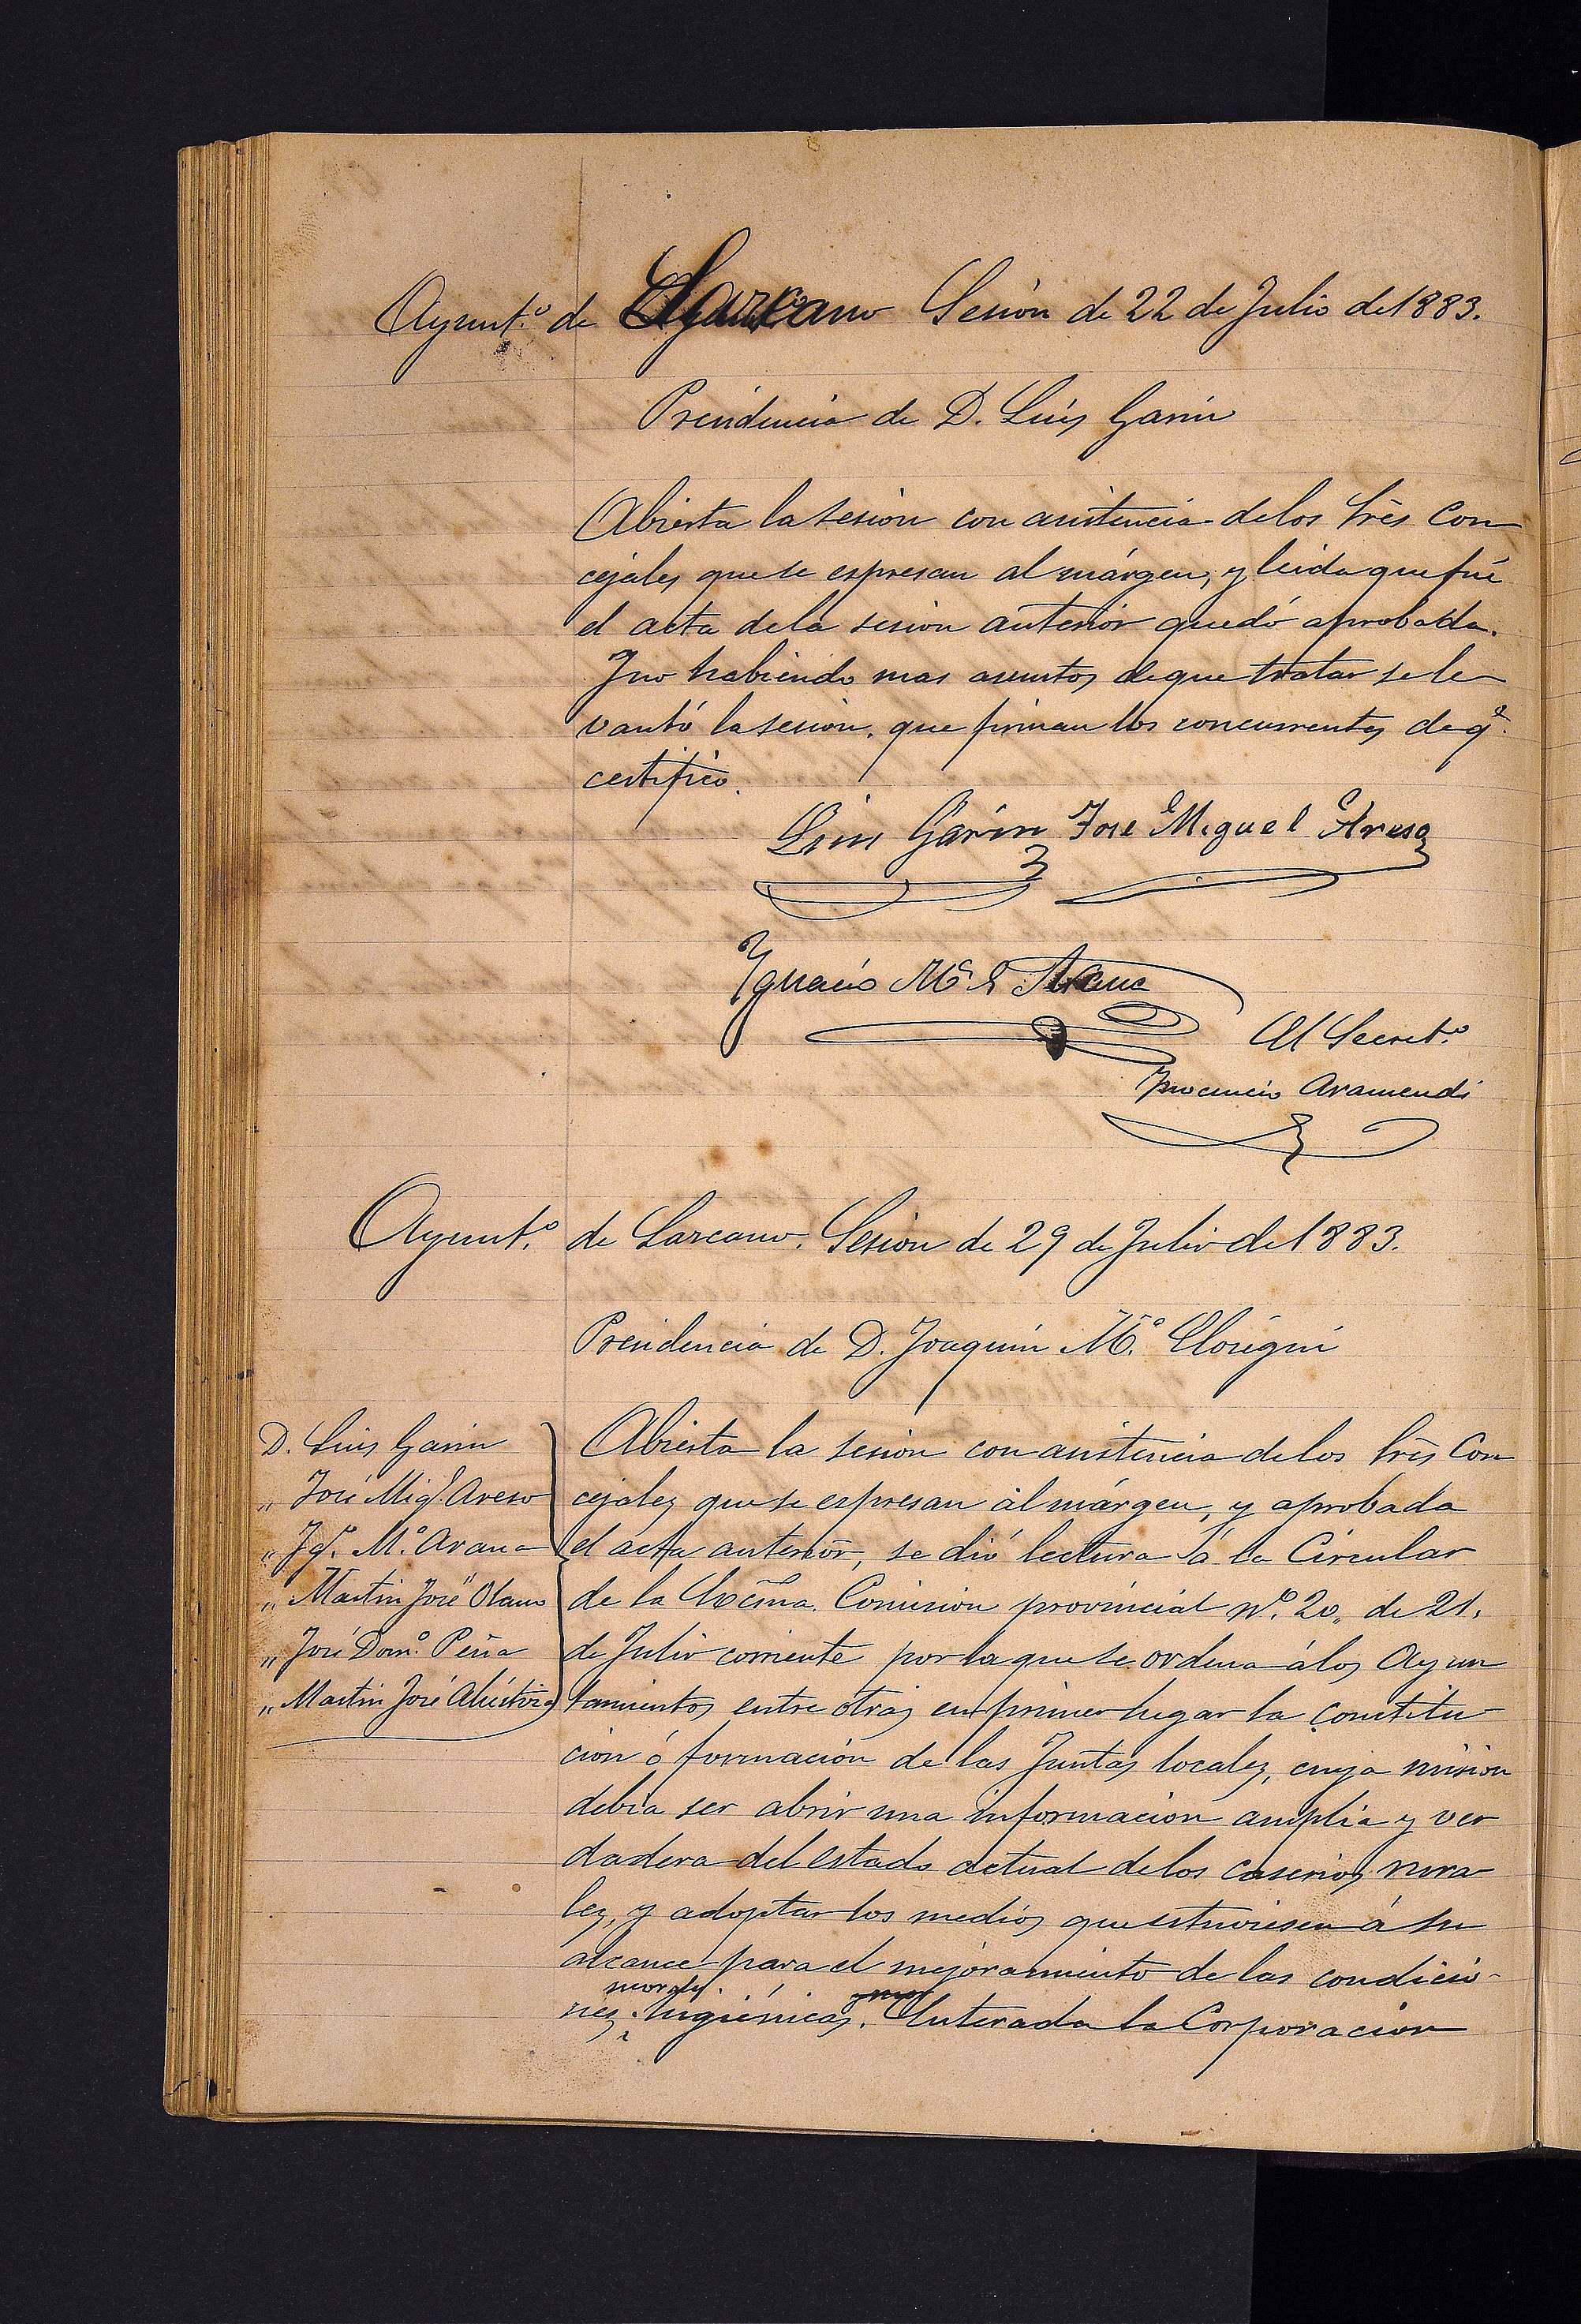 Ayunt.º de Lazcano Sesión de 22 de Julio de 1883.
Presidencia de D. Luis Garin
Abierta la sesion con asistencia de los Sres Con
cejales que se espresan al márgen, y leida que fué
el acta de la sesion anterior quedó aprobada.
Y no habiendo mas asuntos de que tratar se le
vantó la sesion, que firman los concurrentes de q.e
certifico.
Luis Garin José Miguel Areso
Ygnacio M.ª Arana
El Secret.º
Ynocencio Aramendi
Ayunt.º de Lazcano. Sesion de 29 de Julio de 1883.
Presidencia de D. Joaquin M.ª Elosegui
D. Luis Garin
" José Mig.l Areso
" Yg.º M.ª Arana
" Martin José Olano
" José Dom.º Peña
" Martin José
Abierta la sesion con asistencia de los Sres Con
cejales que se espresan al márgen, y aprobada
el acta anterior, se dió lectura á la Circular
de la Excma. Comision provincial N.º 20, de 21,
de Julio corriente por la que se ordena á los Ayun
tamientos entre otras en primer lugar la constitu
cion ó formación de las Juntas locales, cuya mision
debia ser abrir una informacion amplia y ver
dadera del estado actual de los caserios rura
les, y adoptar los medios que estuviesen á su
alcance para el mejoramiento de las condicio-
morales
nes é higiénicas. Enterada la Corporacion